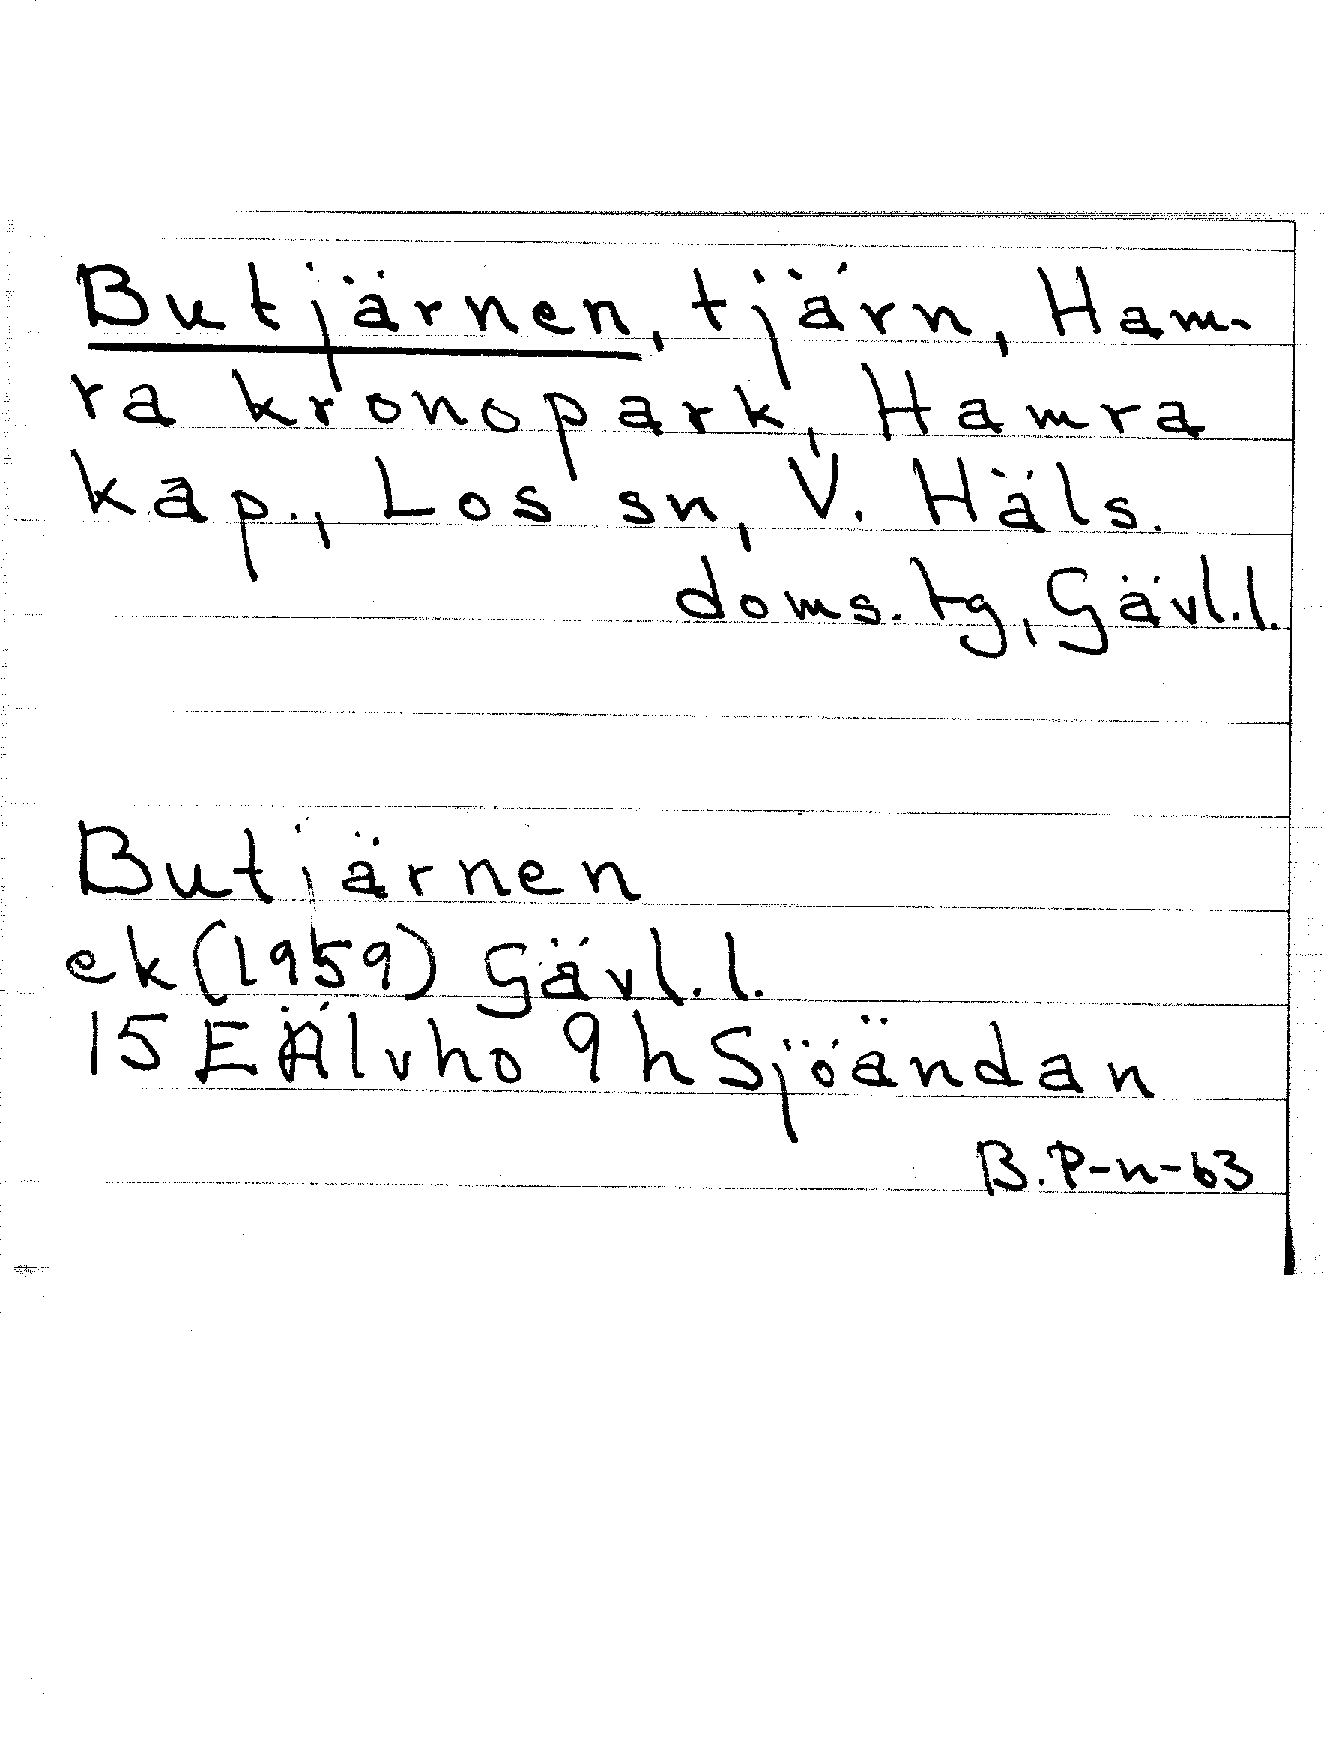 Butjärnen, tjärn, Ham-
ra kronopark, Hamra
kap., Los sn, V. Häls.
doms. tg, Gävl.l.
Butjärnen
ek (1959) Gävl.l.
15 E Älvho 9 h Sjöändan
B. P-n-63